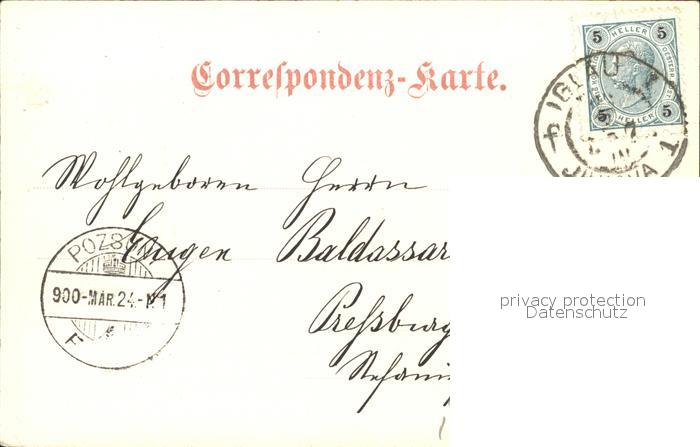 Correspondenz-Karte.
5 HELLER 5
5 HELLER 5
IGLAU
JIHLAVA 1
Wohlgeboren Herrn
Eugen Baldassar
Preßburg
POZSONY
900-MAR.24.-N1
F
privacy protection
Datenschutz